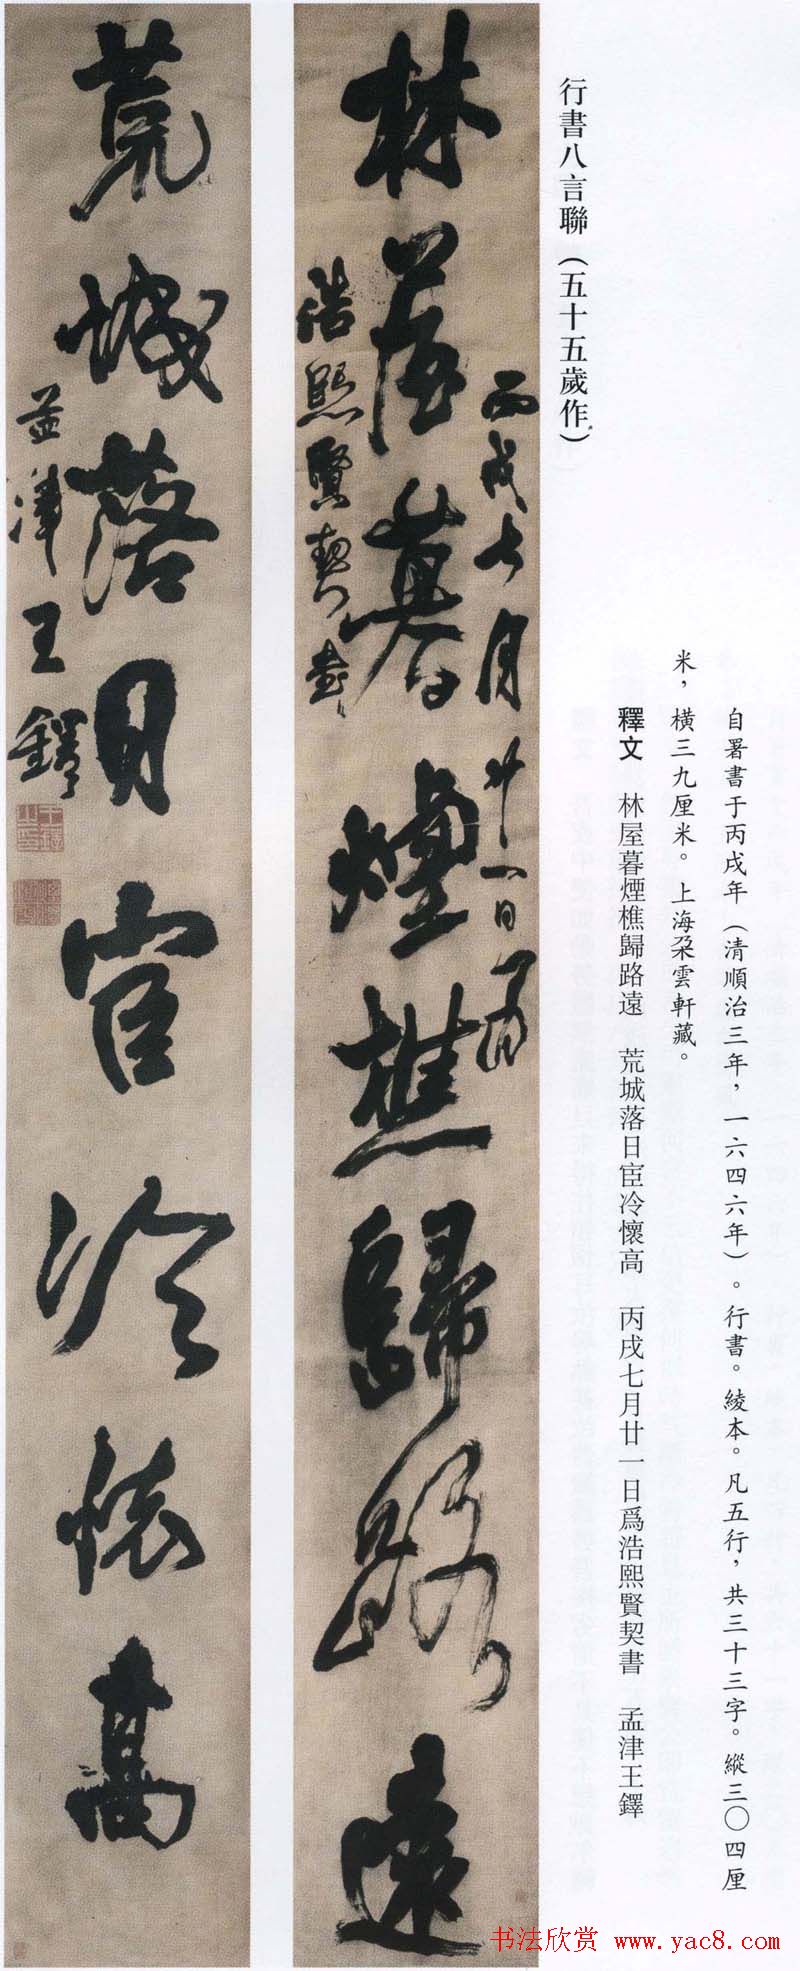 行書八言聯（五十五歲作）
自署書于丙戌年（清順治三年，一六四六年）。行書。綾本。凡五行，共三十三字。縱三〇四厘
米，橫三九厘米。上海朶雲軒藏。
釋文　林屋暮煙樵歸路遠　荒城落日宦冷懷高　丙戌七月廿一日爲浩熙賢契書　孟津王鐸
林屋暮煙樵歸路遠
丙戌七月廿一日爲
浩熙賢契書
荒城落日宦冷懷高
孟津王鐸
书法欣赏 www.yac8.com